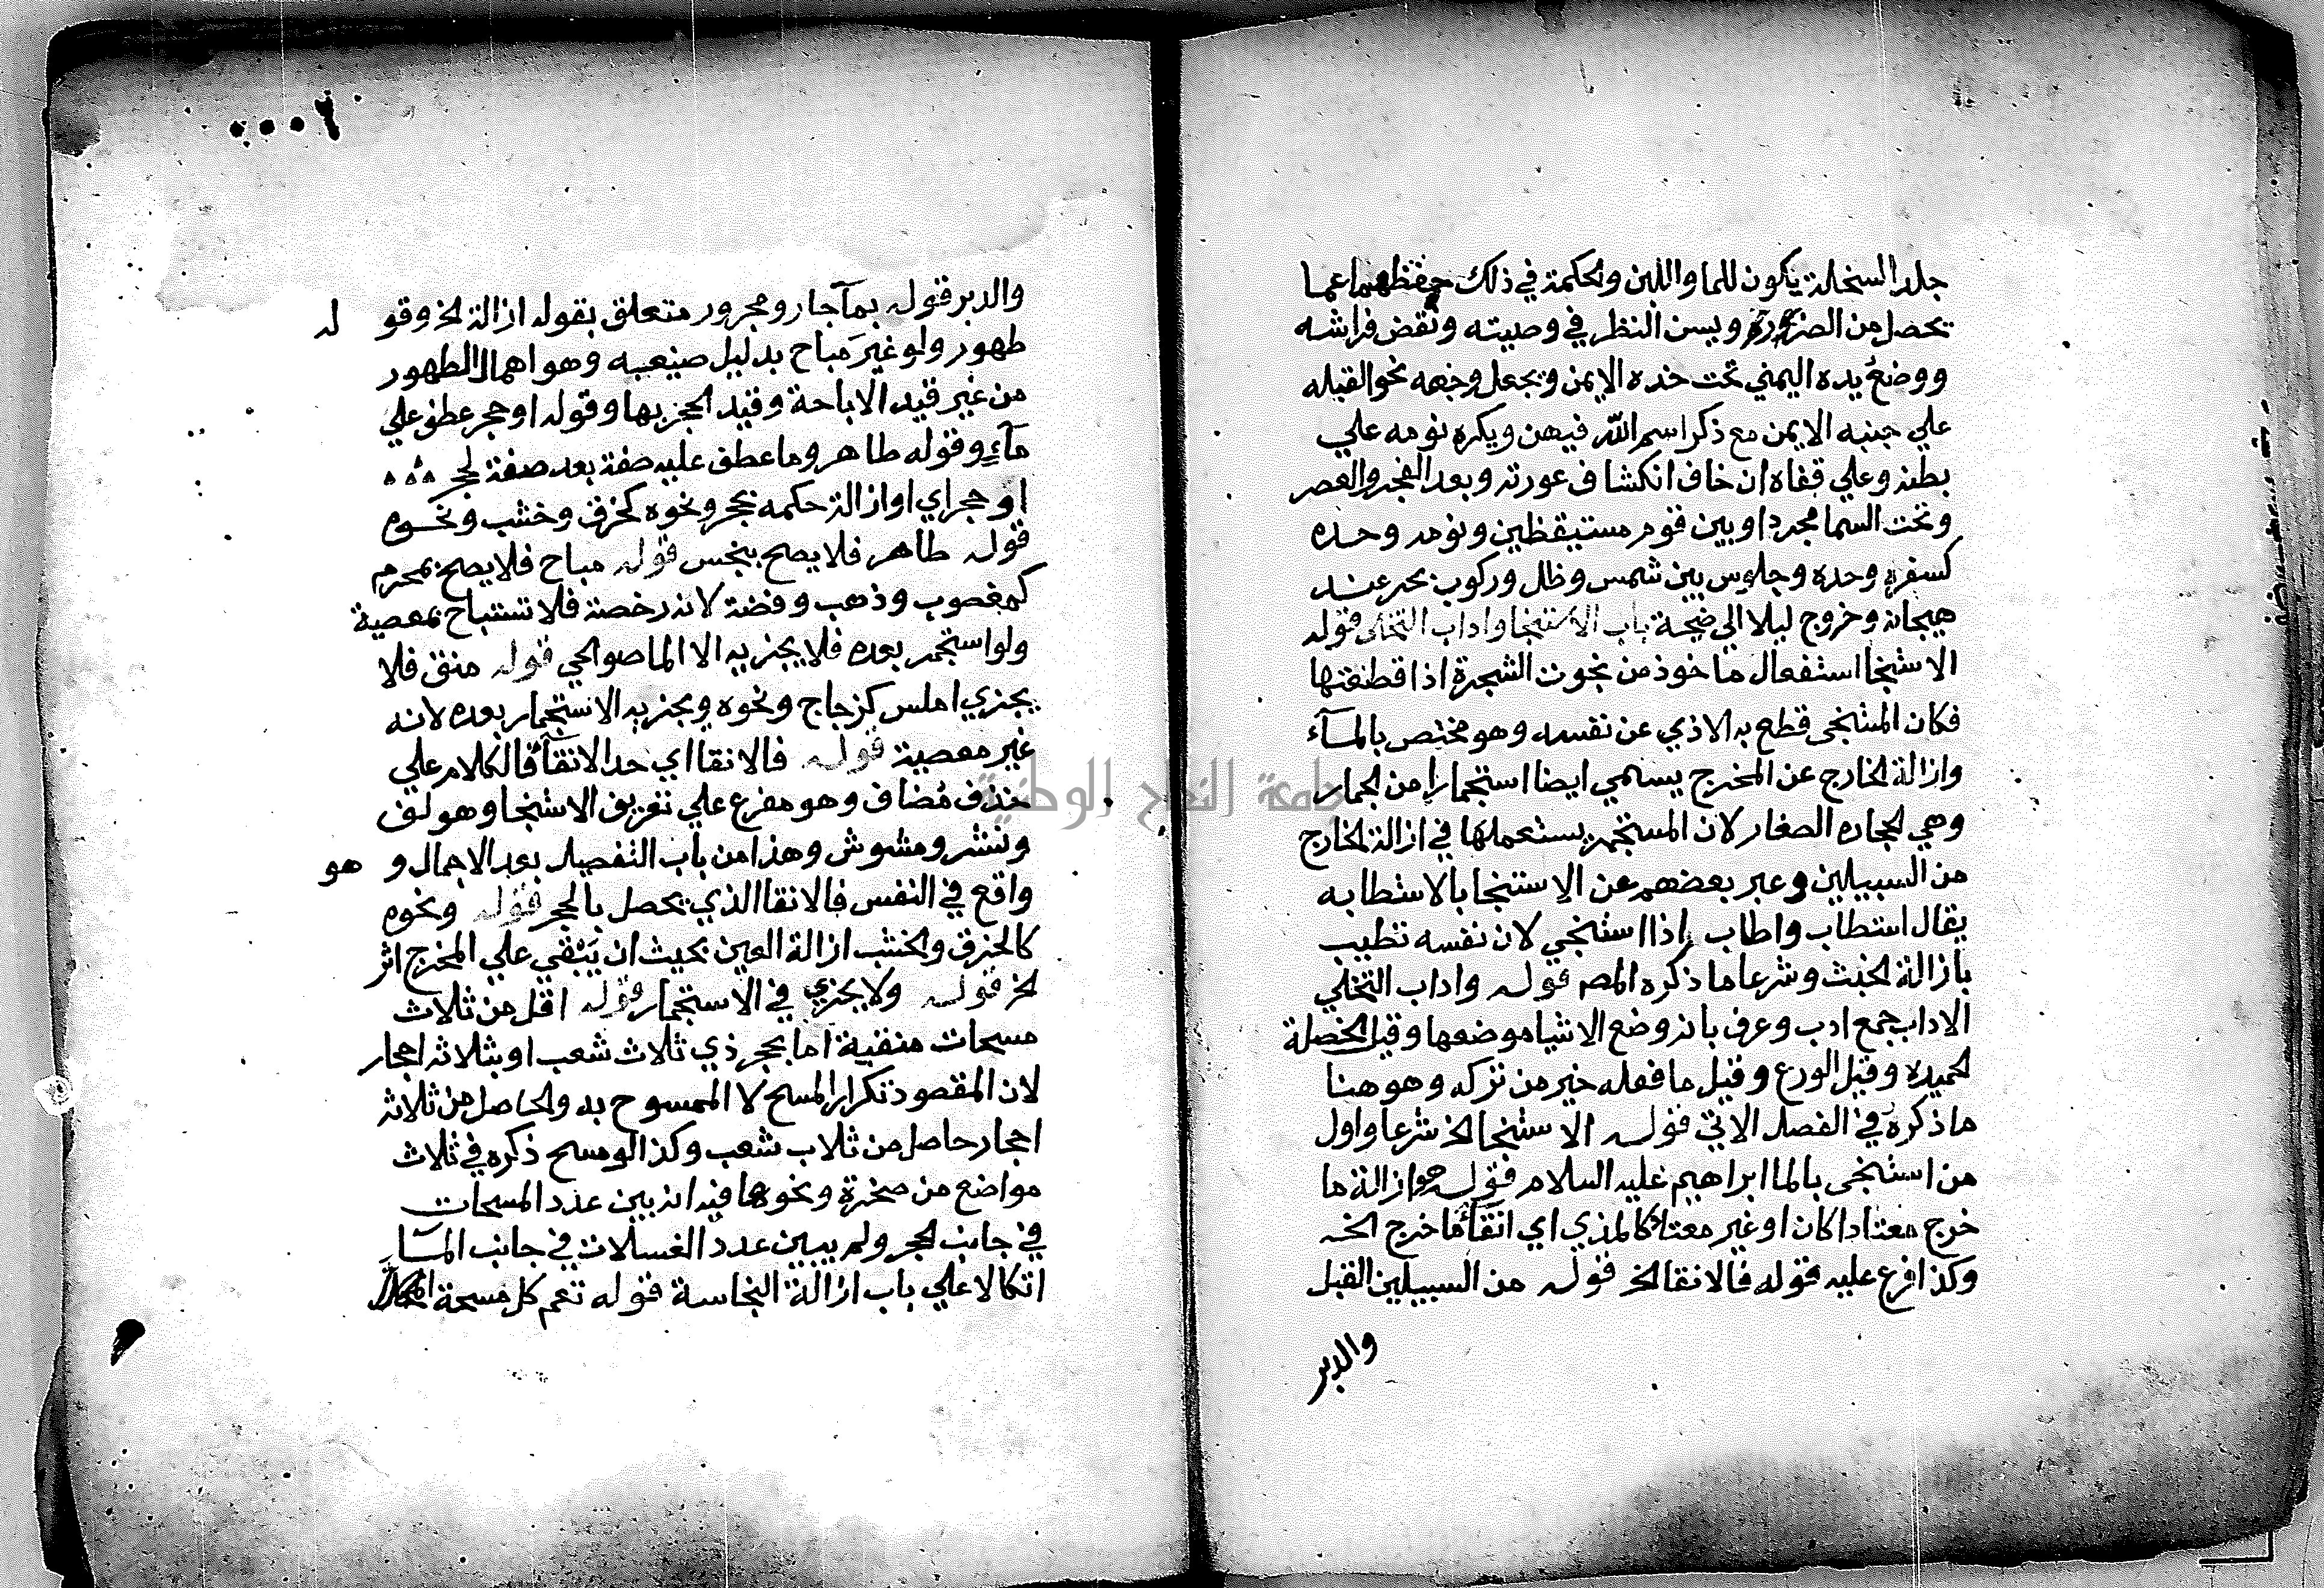 جلد السخلة يكون للما واللبن والحكمة في ذلك حفظهما عما
يحصل من الضرورة ويسن النظر في وصيته ونفض فراشه
ووضع يده اليمني تحت خده الايمن ويجعل وجهه نحو القبله
علي جنبه الايمن مع ذكر اسم الله فيهن ويكره نومه علي
بطنه وعلي قفاه ان خاف انكشاف عورته وبعد الفجر والعصر
وتحت السما مجردا وبين قوم مستيقظين ونومه وحده
كسفره وحده وجلوس بين شمس وظل وركوب بحر عند
هيجانه وخروج ليلا الي ضيحة باب الاستنجا واداب التخلي قوله
الاستنجا استفعال ماخوذ من نجوت الشجرة اذا قطعتها
فكان المستنجي قطع به الاذي عن نفسه وهو مختص بالمآء
وازالة الخارج عن المخرج يسمي ايضا استجمارا من الجمار
وهي الحجاره الصغار لان المستجمر يستعملها في ازالة الخارج
من السبيلين وعبر بعضهم عن الاستنجا بالاستطابه
يقال استطاب واطاب اذا استنجي لان نفسه تطيب
بازالة الخبث وشرعا ما ذكره المص قوله واداب التخلي
الاداب جمع ادب وعرف بانه وضع الاشيا موضعها وقيل الخصلة
الحميده وقيل الورع وقيل ما فعله خير من تركه وهو هنا
ما ذكره في الفصل الاتي قوله الاستنجا الخ شرعا واول
من استنجي بالما ابراهيم عليه السلام قوله هو ازالة ما
خرج معتادا كان او غير معتاد كالمذي اي انقآء ما خرج الخ
وكذا فرع عليه قوله فالانقا الخ قوله من السبيلين القبل
والدبر
والدبر قوله بمآ جار ومجرور متعلق بقوله ازالة الخ وقوله
طهور ولو غير مباح بدليل صنيعه وهو اهمال الطهور
من غير قيد الاباحة وقيد الحجر بها وقوله او حجر عطف علي
مآء وقوله طاهر وما عطف عليه صفة بعد صفة لحجر
او حجر اي او ازالة حكمه بحجر ونحوه كخرف وخشب ونحوه
قوله طاهر فلا يصح بنجس قوله مباح فلا يصح بمحرم
كمغصوب وذهب وفضة لانه رخصة فلا تستباح بمعصية
ولو استجمر بعده فلا يجزيه الا الما صوالحي قوله منق فلا
يجزي املس كزجاج ونحوه ويجزيه الاستجمار بعده لانه
غير معصية قوله فالانقا اي حد الانقآء فالكلام علي
حذف مضاف وهو مفرع علي تعريف الاستنجا وهو لف
ونشر ومشوش وهذا من باب التفصيل بعد الاجمال وهو
واقع في النفس فالانقا الذي يحصل بالحجر قوله ونحوه
كالخرق والخشب ازالة العين بحيث ان يبقي علي المخرج اثر
الخ قوله ولا يجزي في الاستجمار قوله اقل من ثلاث
مسحات منقية اما بحجر ذي ثلاث شعب او بثلاثه احجار
لان المقصود تكرار المسح لا الممسوح به والحاصل من ثلاثه
احجار حاصل من ثلاب شعب وكذا لو مسح ذكره في ثلاث
مواضع من صخرة ونحوها فيه انه بين عدد المسحات
في جانب الحجر ولم يبين عدد الغسلات في جانب المآ
اتكالا علي باب ازالة النجاسة قوله تعم كل مسحة المحل
جامعة النجاح الوطنية